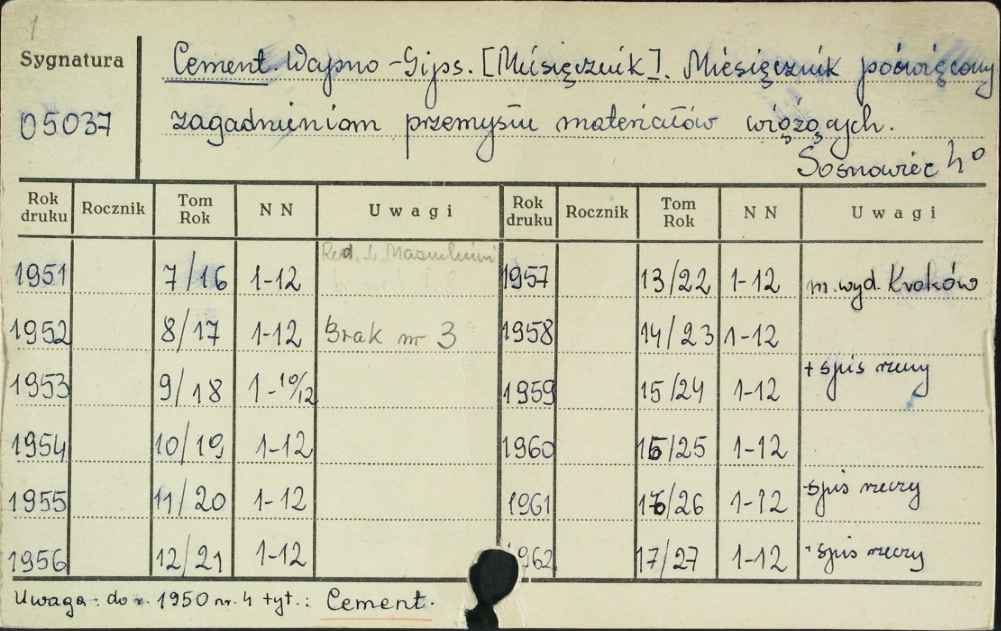 1
Sygnatura
05037
Cement. Wapno-Gips. [Miesięcznik]. Miesięcznik poświęcony
zagadnieniom przemysłu materiałów wiążących.
Sosnowiec 4°
Rok druku Rocznik Tom Rok NN Uwagi Rok druku Rocznik Tom Rok NN Uwagi
Red.
1951 7/16 1-12 1957 13/22 1-12 m.wyd. Kraków
1952 8/17 1-12 Brak nr 3 1958 14/23 1-12
1953 9/18 1-10/12 1959 15/24 1-12 + spis rzeczy
1954 10/19 1-12 1960 16/25 1-12
1955 11/20 1-12 1961 16/26 1-12 + spis rzeczy
1956 12/21 1-12 1962 17/27 1-12 + spis rzeczy
Uwaga: do r. 1950 nr. 4 tyt.: Cement.